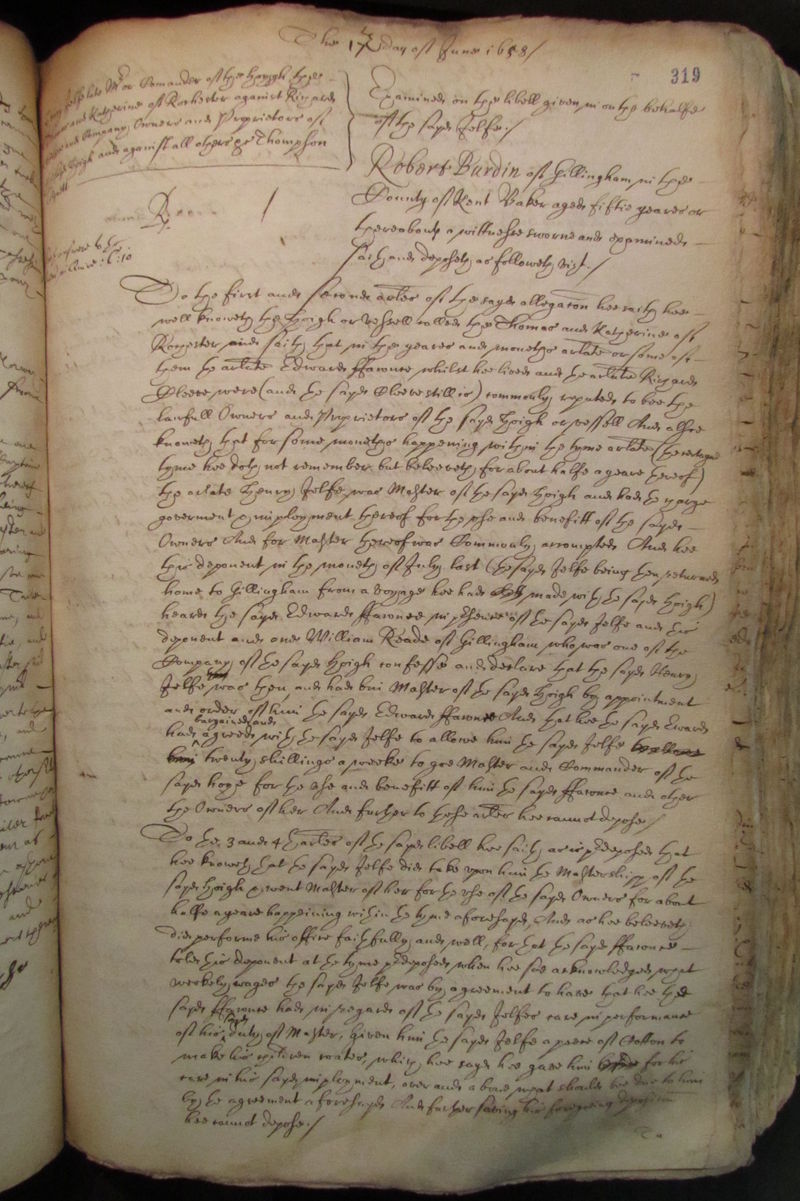 The 17th day of June 1658/
319
Henry Jelfe late Mr or Comander of the Hoygh the
Thomas and Katherine of Rochester against Richard
and Company Owners and Proprietors of
the sayd Hoigh and against all others &c Thompson
Examined on the libell given in on the behalfe
of the sayd Jelfe./
Robert Burdin of Gillingham in the
County of Kent Baker aged fiftie yeares or
thereabouts a wittnesse sworne and examined
saith and deposeth as followeth vizt./
To the first and second articles of the sayd allegacon hee saith hee
well knoweth the Hoigh or vessell called the Thomas and Katherine of
Rochester and saith that in the yeares and moneths arlate or some of
them the arlate Edward ffawnce whilst hee lived and the arlate Richard
were (and the sayd still is) commonly reputed to bee the
lawfull Owners and Proprietors of the sayd Hoigh or vessell And alsoe
knoweth that for some moneths happening within the tyme arlate (the certayne
tyme hee doth not remember but beleeveth for about halfe a yeare thereof)
the arlate Henry Jelfe was Master of the sayd Hoigh and had the charge
goverment & imployment thereof for the use and benefitt of the sayd
Owners And for Master thereof was Commonly accompted And hee
this deponent in the moneth of July last (the sayd Jelfe being then returned
home to Gillingham from a voyage hee had made with the sayd Hoigh)
heard the sayd Edward ffawnce in presence of the sayd Jelfe and this
deponent and one William Reade of Gillingham who was one of the
Company of the sayd Hoigh confesse and declare that the sayd Henry
Jelfe was then and had bin Master of the sayd Hoigh by appointment
and order of him the sayd Edward ffawnce And that hee the sayd Edward
bargained and
had agreed with the sayd Jelfe to allowe him the sayd Jelfe
twenty shillings a weeke to goe Master and Commander of the
sayd hoye for the use and benefitt of him the sayd ffawnce and other
the Owners of her And further to these articles hee cannot depose./
To the 3 and 4th articles of the sayd libell hee saith as is predeposed that
hee knoweth that the sayd Jelfe did take upon him the Mastershipp of the
sayd Hoigh & went Master of her for the use of the sayd Owners for about
halfe a yeare happening within the tyme aforesayd, And as hee beleeveth
did performe his office faithfully and well, for that the sayd ffawnce
told this deponent at the tyme predeposed, when hee soe acknowledged what
weekely wages the sayd Jelfe was by agreement to have that hee the
sayd ffawnce had in regard of the sayd Jelfes care in performance
sayd
of his duty of Master, given him the sayd Jelfe a peece of Cotton to
make his children coates, which hee sayd hee gave him for his
care in his sayd imployment, over and above what should bee due to him
by the agreement aforesayd And further saving his foregoing deposition
hee cannot depose./
To